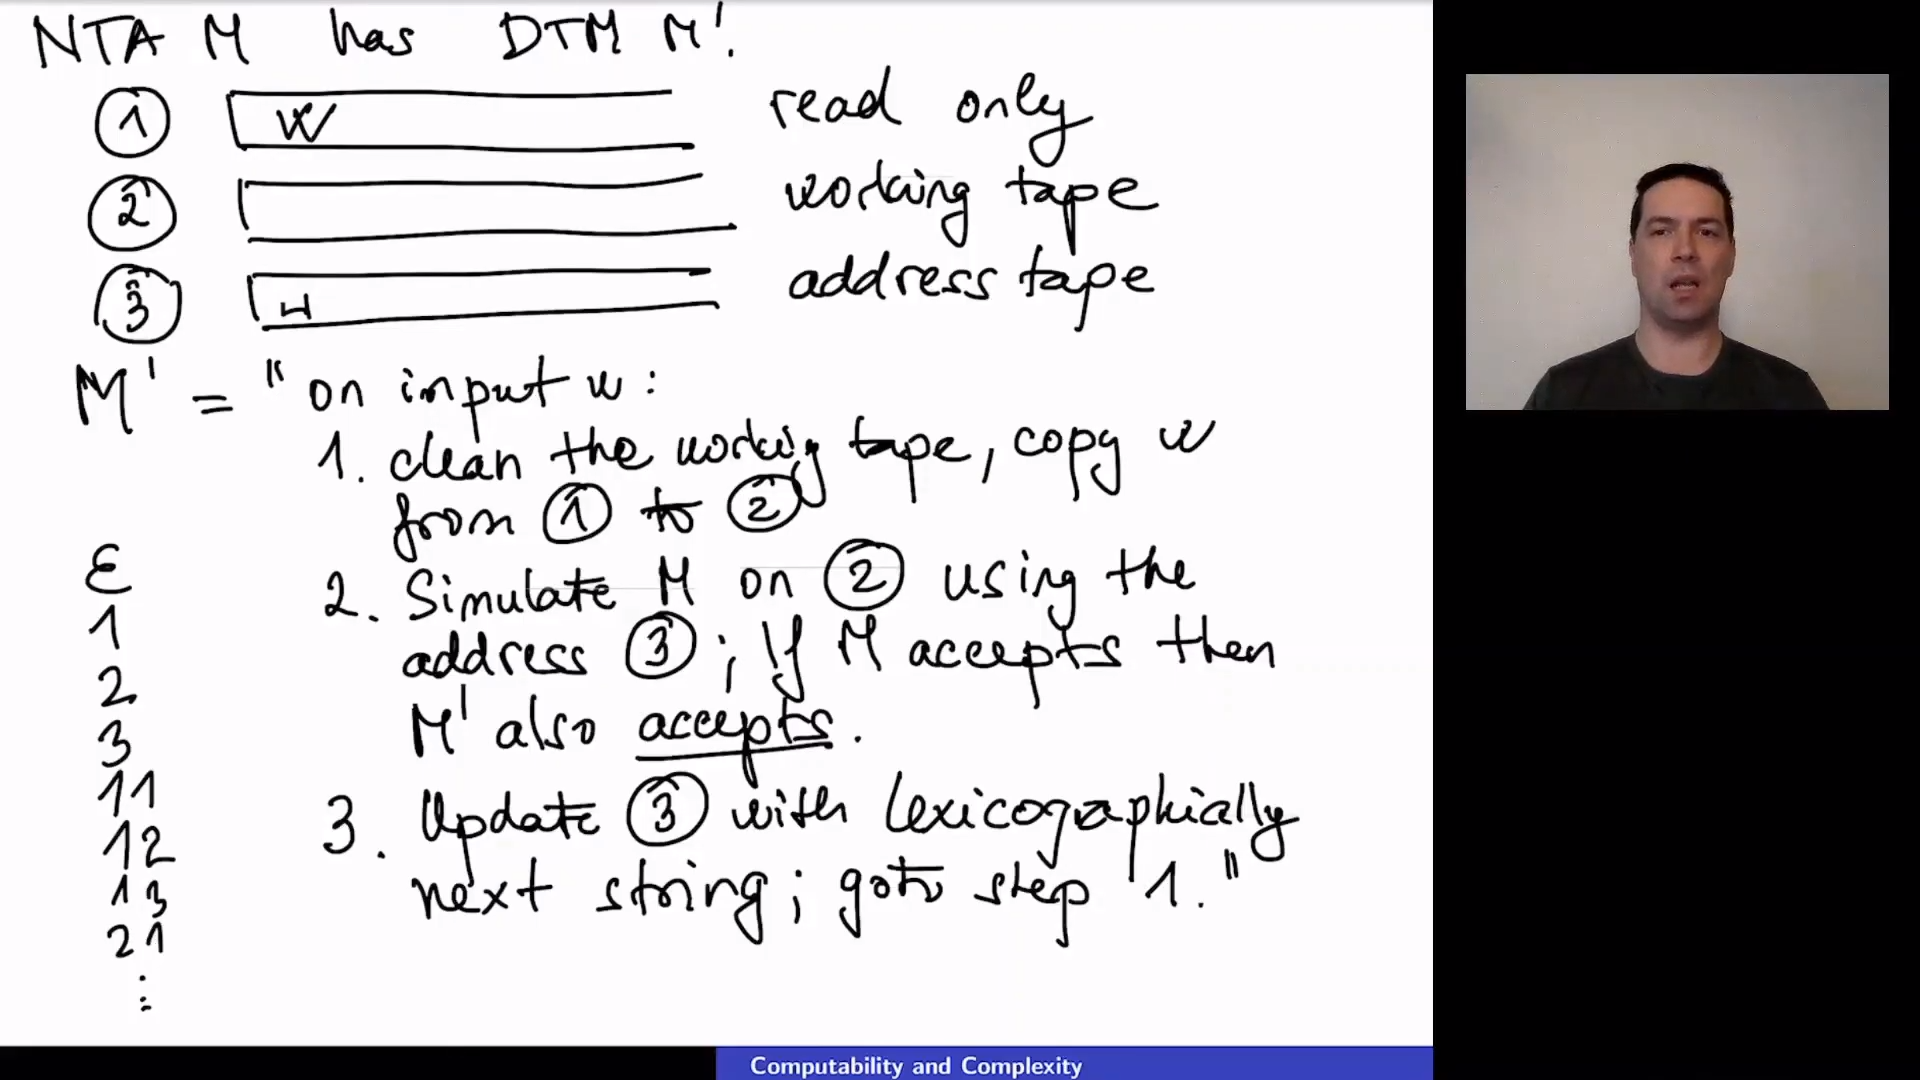 NTA M has DTM M'.
① W read only
② working tape
③ ⊔ address tape
M' = "on input w:
1. clean the working tape, copy w
from ① to ②
2. Simulate M on ② using the
address ③; if M accepts then
M' also accepts.
3. Update ③ with lexicographically
next string; goto step 1."
ε
1
2
3
11
12
13
21
⋮
Computability and Complexity